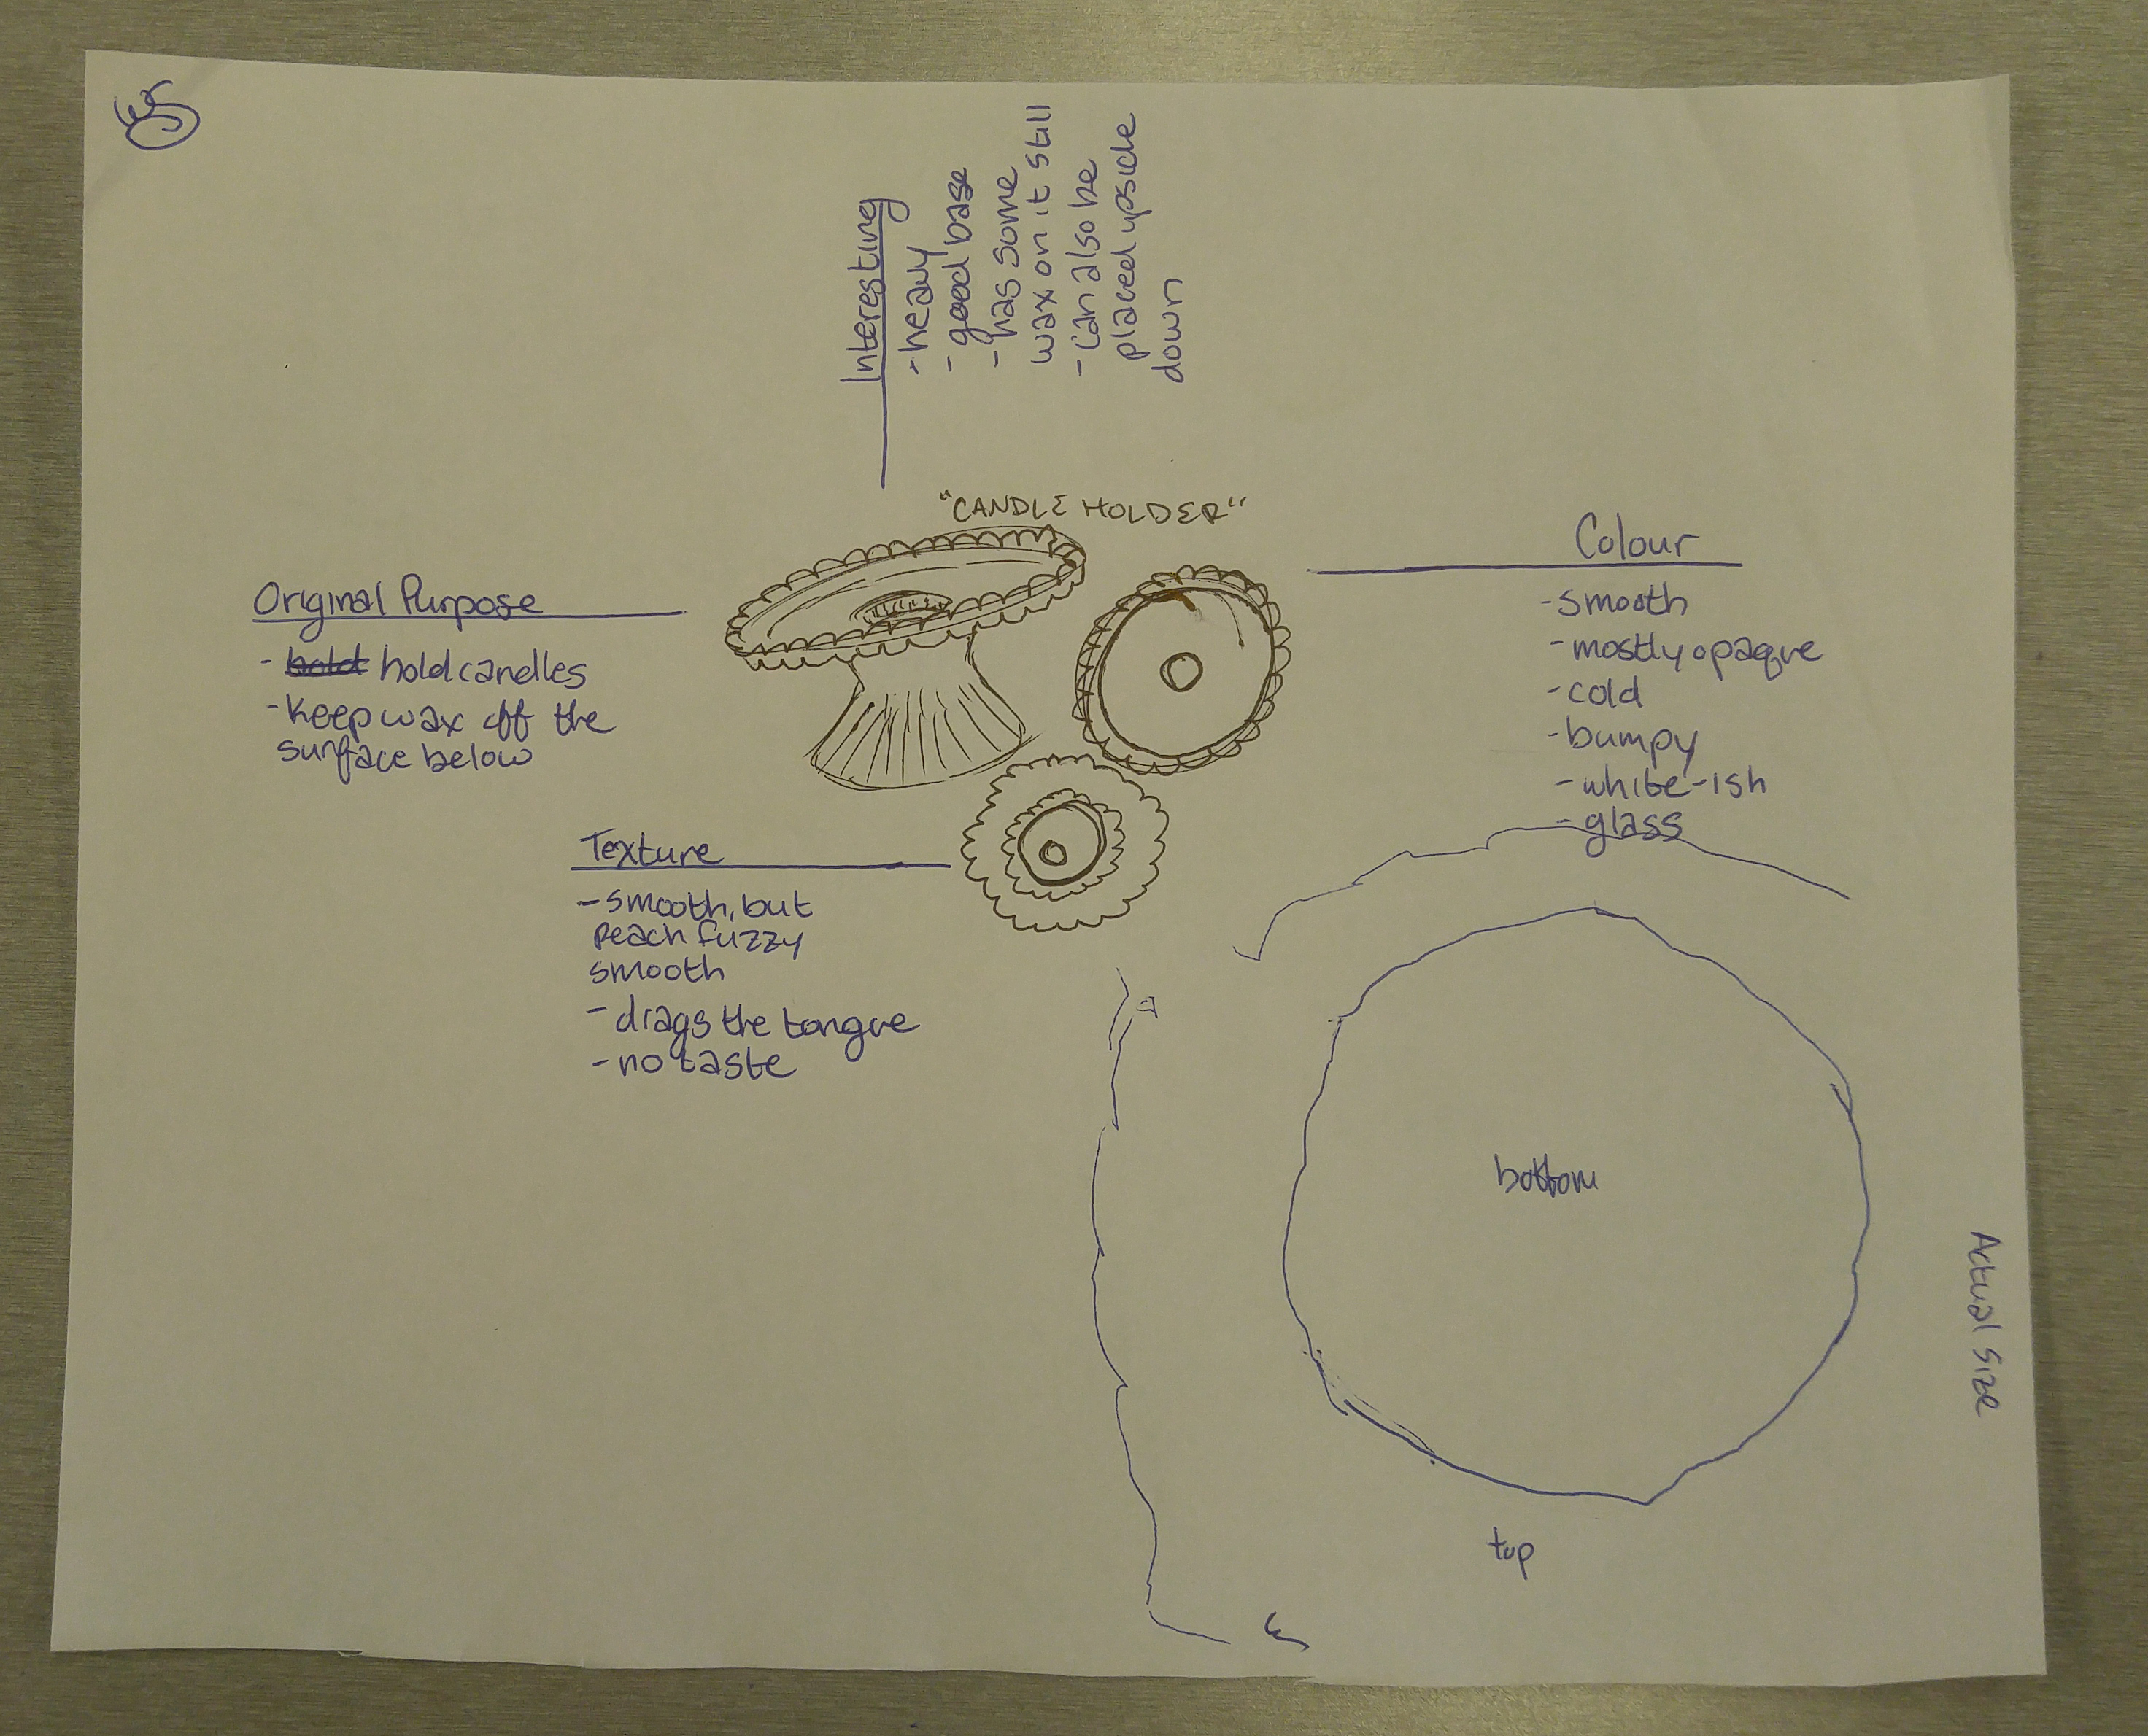 Interesting
- heavy
- good base
- has some
wax on it still
- can also be
placed upside
down
"CANDLE HOLDER"
Original Purpose
- hold hold candles
- keep wax off the
surface below
Colour
- smooth
- mostly opaque
- cold
- bumpy
- white-ish
- glass
Texture
- smooth, but
peach fuzzy
smooth
- drags the tongue
- no taste
bottom
top
Actual Size